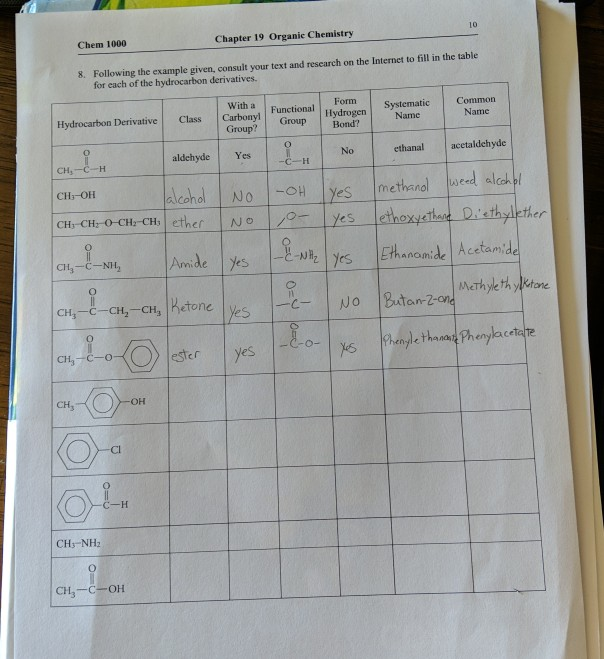 10
Chem 1000
Chapter 19 Organic Chemistry
8. Following the example given, consult your text and research on the Internet to fill in the table
for each of the hydrocarbon derivatives.
Hydrocarbon Derivative
Class
With a
Carbonyl
Group?
Functional
Group
Form
Hydrogen
Bond?
Systematic
Name
Common
Name
O
CH₃—C—H
aldehyde
Yes
O
-C-H
No
ethanal
acetaldehyde
CH₃-OH
alcohol
NO
-OH
yes
methanol
weed alcohol
CH₃-CH₂-O-CH₂-CH₃
ether
NO
O-
yes
ethoxyethane
Diethylether
O
CH₃—C—NH₂
Amide
yes
O
-C-NH₂
yes
Ethanamide
Acetamide
O
CH₃—C—CH₂—CH₃
Ketone
yes
O
-C-
NO
Butan-2-one
Methylethylketone
O
CH₃—C—O—
ester
yes
O
-C-O-
yes
Phenylethanoate
Phenylacetate
CH₃
-OH
-Cl
O
C—H
CH₃-NH₂
O
CH₃—C—OH